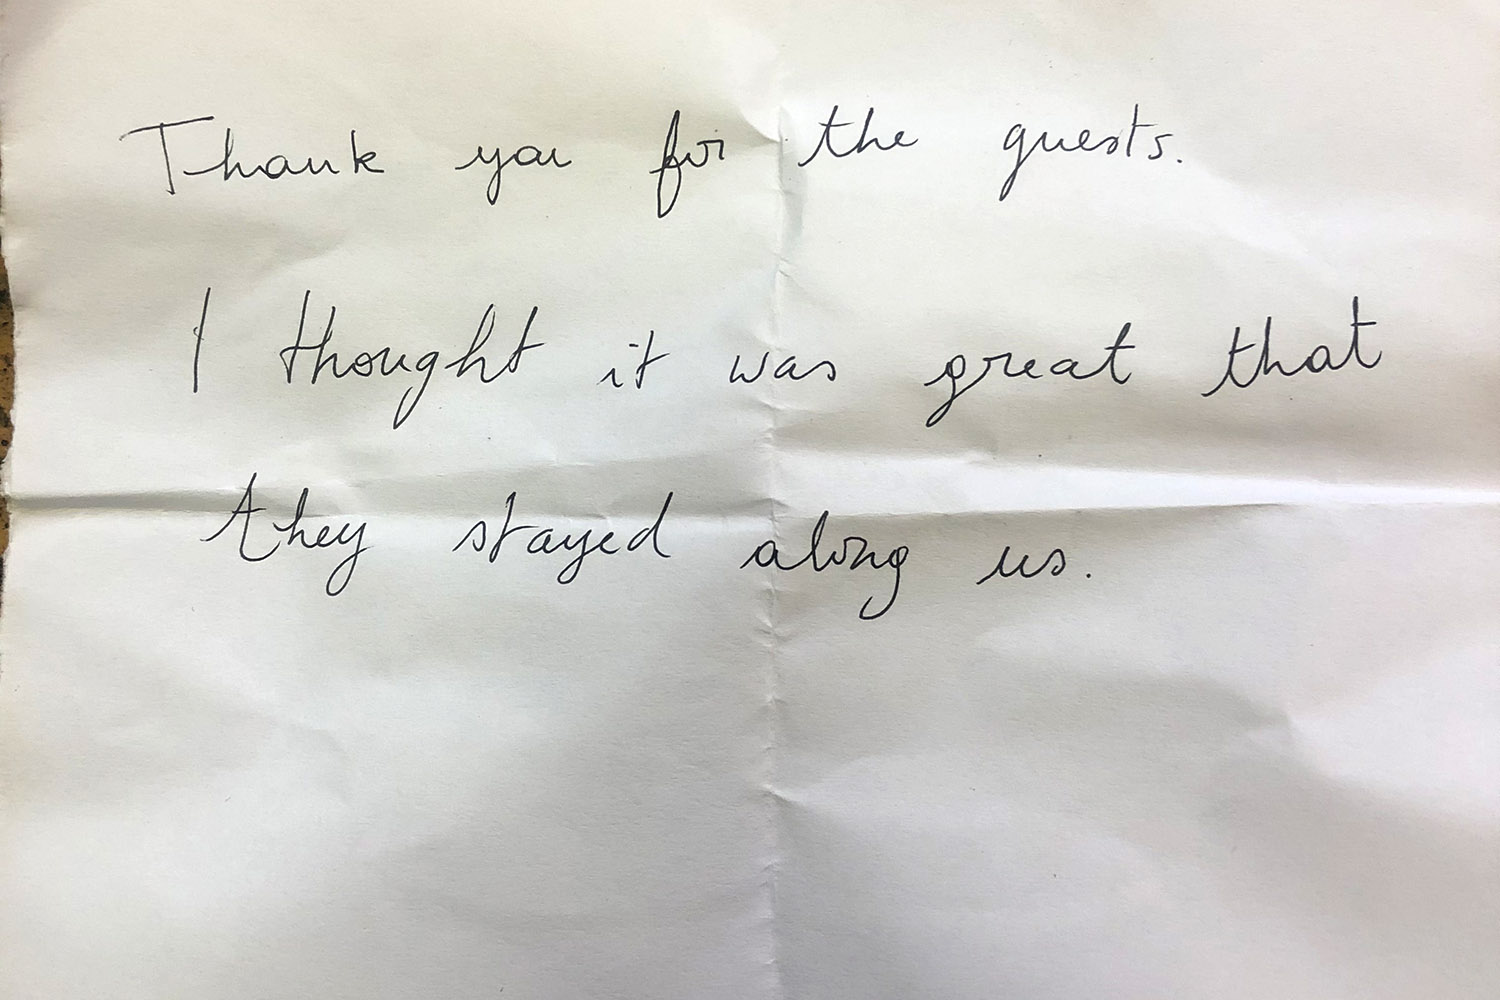 Thank you for the guests.
I thought it was great that
they stayed along us.